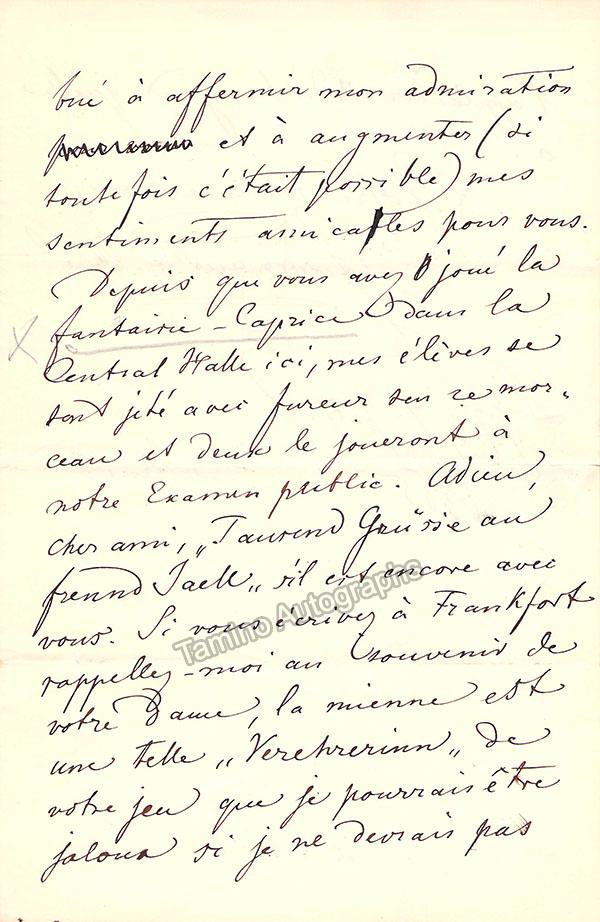 bué à affermir mon admiration
et à augmenter (si
toutefois c'était possible) mes
sentiments amicables pour vous.
Depuis que vous avez joué la
fantaisie - Caprice dans la
Central Halle ici, mes élèves se
sont jeté avec fureur sur ce mor-
ceau et deux le joueront à
notre Examen public. Adieu,
cher ami, „Tausend Grüsse an
freund Jaell„ s'il est encore avec
vous. Si vous écrivez à Frankfort
rappellez-moi au souvenir de
votre Dame, la mienne est
une telle „Verehrerinn„ de
votre jeu que je pourrais être
jaloux si je ne devrais pas
Tamino Autographs